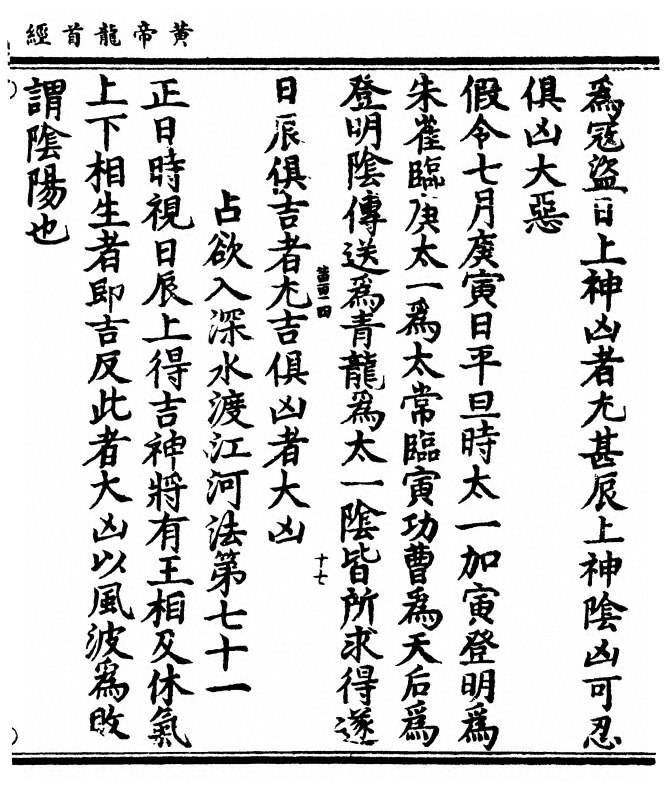 黃帝龍首經
為冦盜日上神凶者尤甚辰上神陰凶可忍
俱凶大惡
假令七月庚寅日平旦時太一加寅登明為
朱雀臨庚太一為太常臨寅功曹為天后為
登明陰傳送為青龍為太一陰皆所求得遂
日辰俱吉者尤吉俱凶者大凶
第百二四
十七
占欲入深水渡江河法第七十一
正日時視日辰上得吉神將有王相及休氣
上下相生者即吉反此者大凶以風波為敗
謂陰陽也